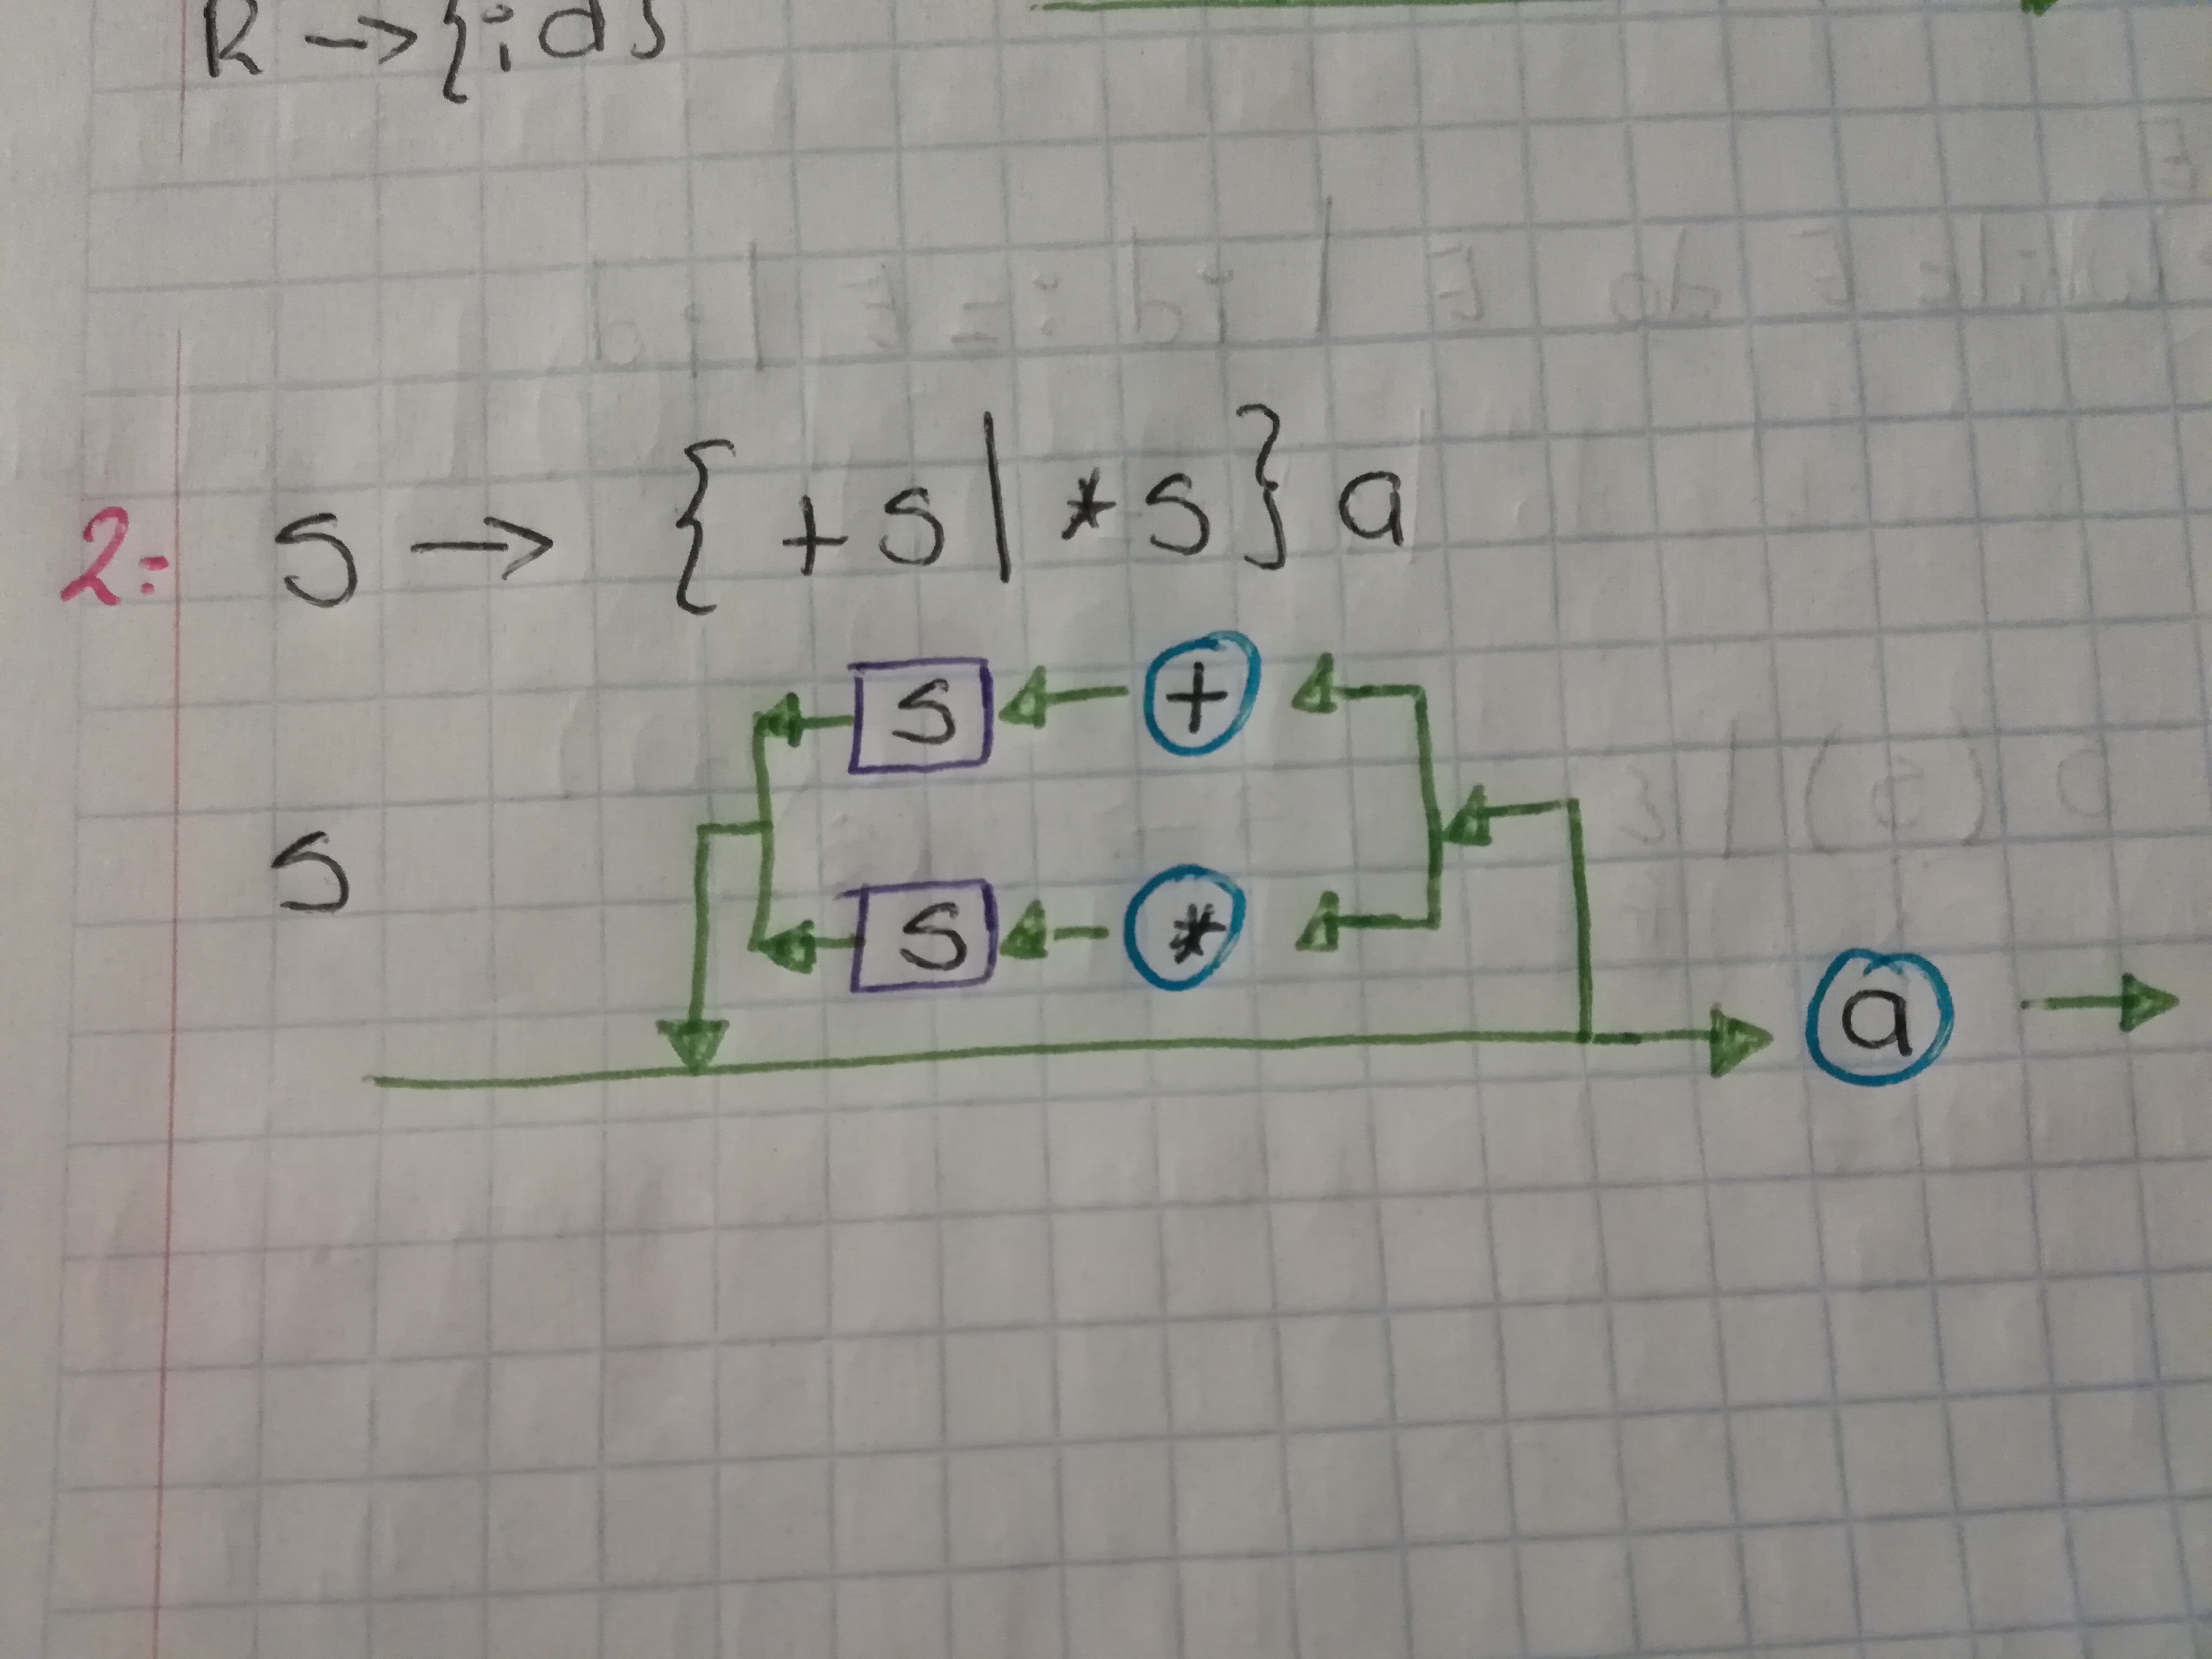 R → {id}
2: S → { +S | *S } a
S +
S
S *
a